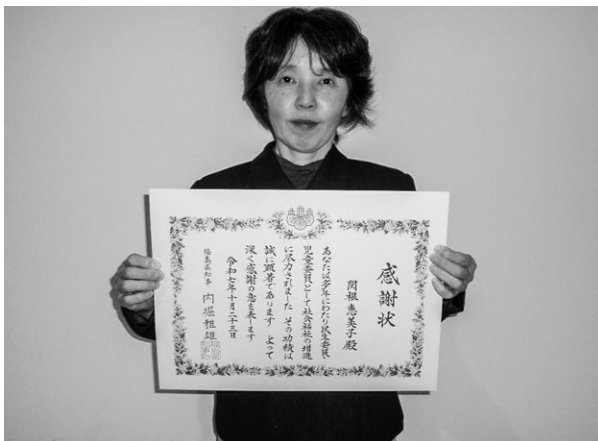 感謝状
関根恵美子殿
あなたは多年にわたり民生委員・
児童委員として社会福祉の増進
に尽力されました その功績は
誠に顕著であります よって
深く感謝の意を表します
令和七年十月二十三日
福島県知事 内堀雅雄